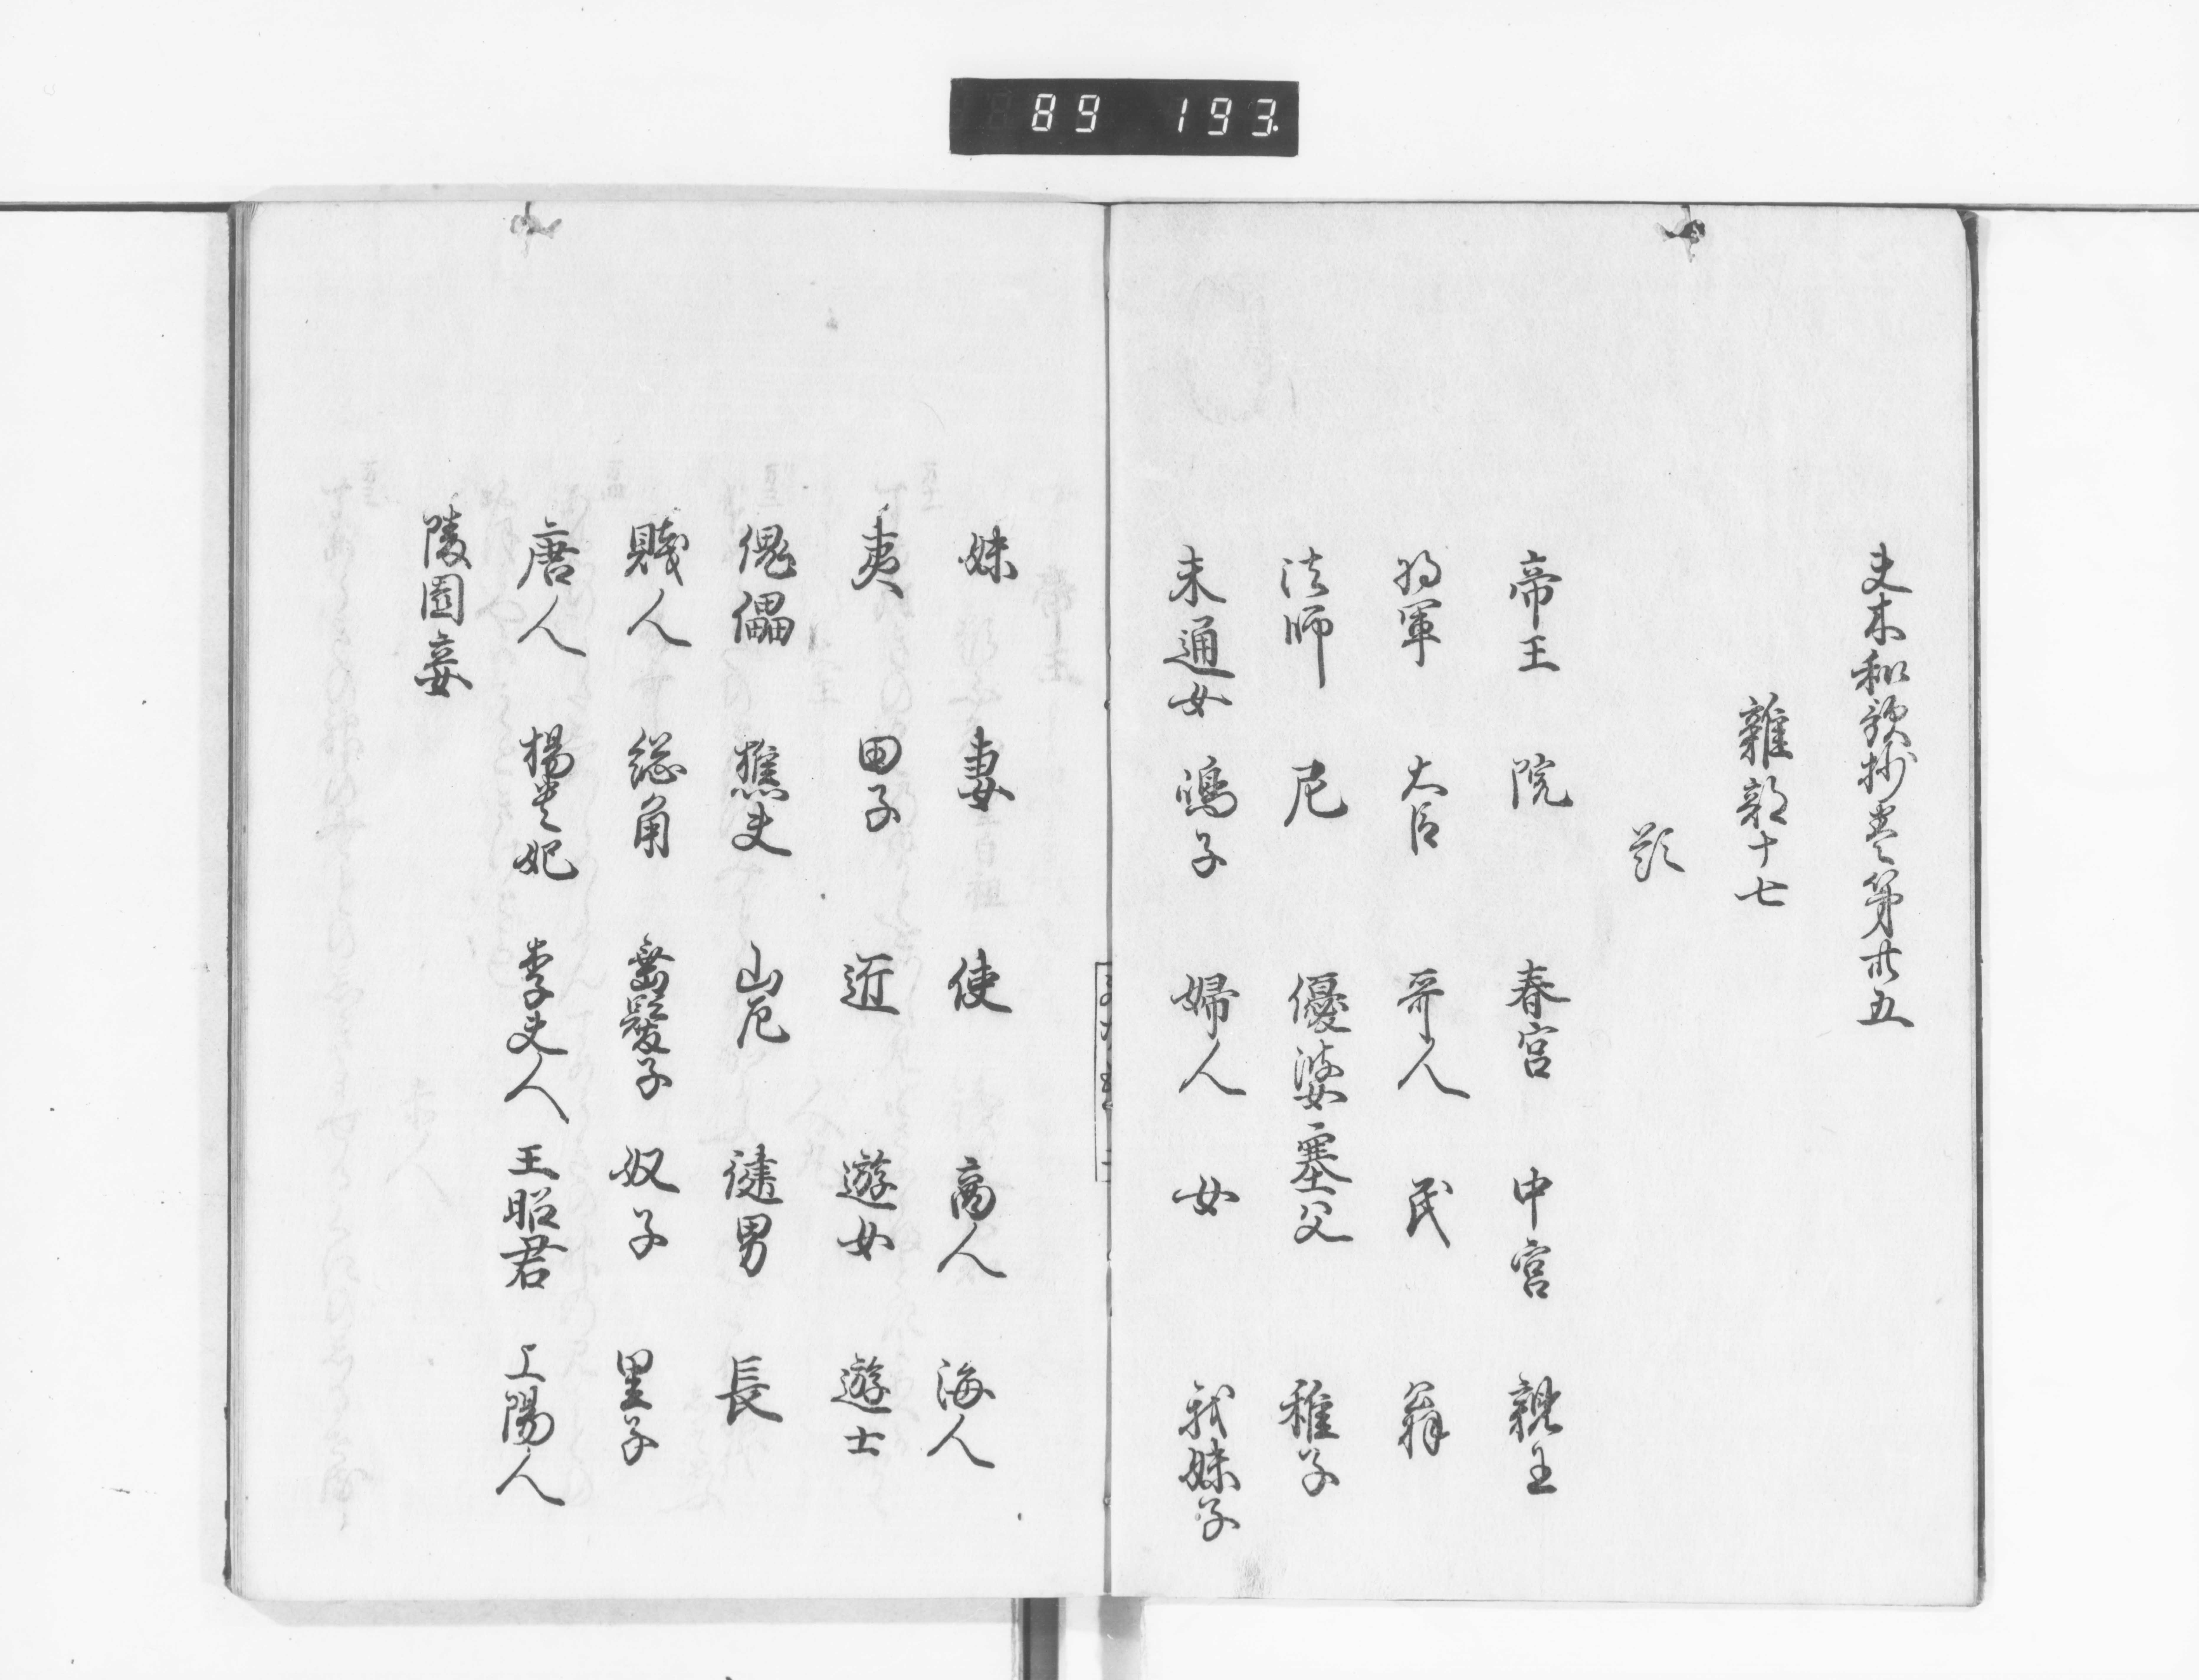 89 193.
夫木和歌抄巻第卅五
雑部十七
題
帝王 院 春宮 中宮 親王
将軍 大臣 哥人 民 翁
法師 尼 優婆塞 父 稚子
未通女 鳰子 婦人 女 我妹子
妹 妻 使 商人 海人
夷 田子 遊女 遊士
傀儡 樵夫 山 健男 長
賤人 総角 髫髪子 奴子 里子
唐人 楊貴妃 李夫人 王昭君 上陽人
陵園妾